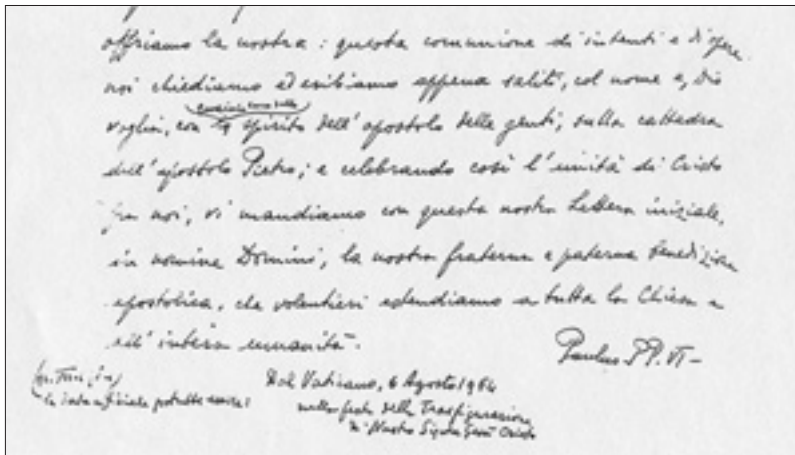 offriamo la nostra: questa comunione di intenti e di opere
noi chiediamo ed esibiamo appena saliti, col nome e, Dio
voglia, con lo spirito dell'apostolo delle genti, sulla cattedra
dell'apostolo Pietro; e celebrando così l'unità di Cristo
fra noi, vi mandiamo con questa nostra Lettera iniziale,
in nomine Domini, la nostra fraterna e paterna Benedizione
apostolica, che volentieri estendiamo a tutta la Chiesa e
all'intera umanità.
Paulus PP. VI-
Dal Vaticano, 6 Agosto 1964
la data ufficiale potrebbe essere:
nella festa della Trasfigurazione
di Nostro Signore Gesù Cristo